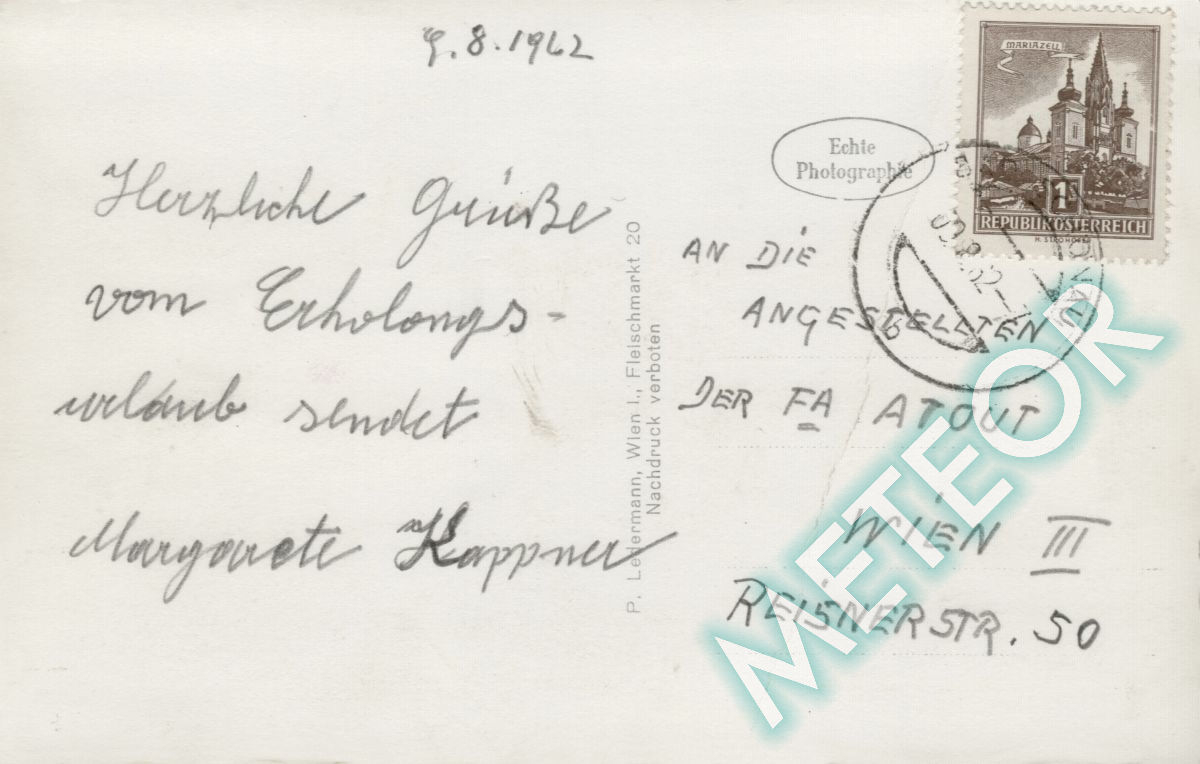 9.8.1962
Herzliche Grüße
vom Erholungs-
urlaub sendet
Margarete Kappner
P. Ledermann, Wien I., Fleischmarkt 20
Nachdruck verboten
Echte
Photographie
MARIAZELL
1
REPUBLIK ÖSTERREICH
AN DIE
ANGESTELLTEN
DER FA ATOUT
WIEN III
REISNERSTR. 50
METEOR